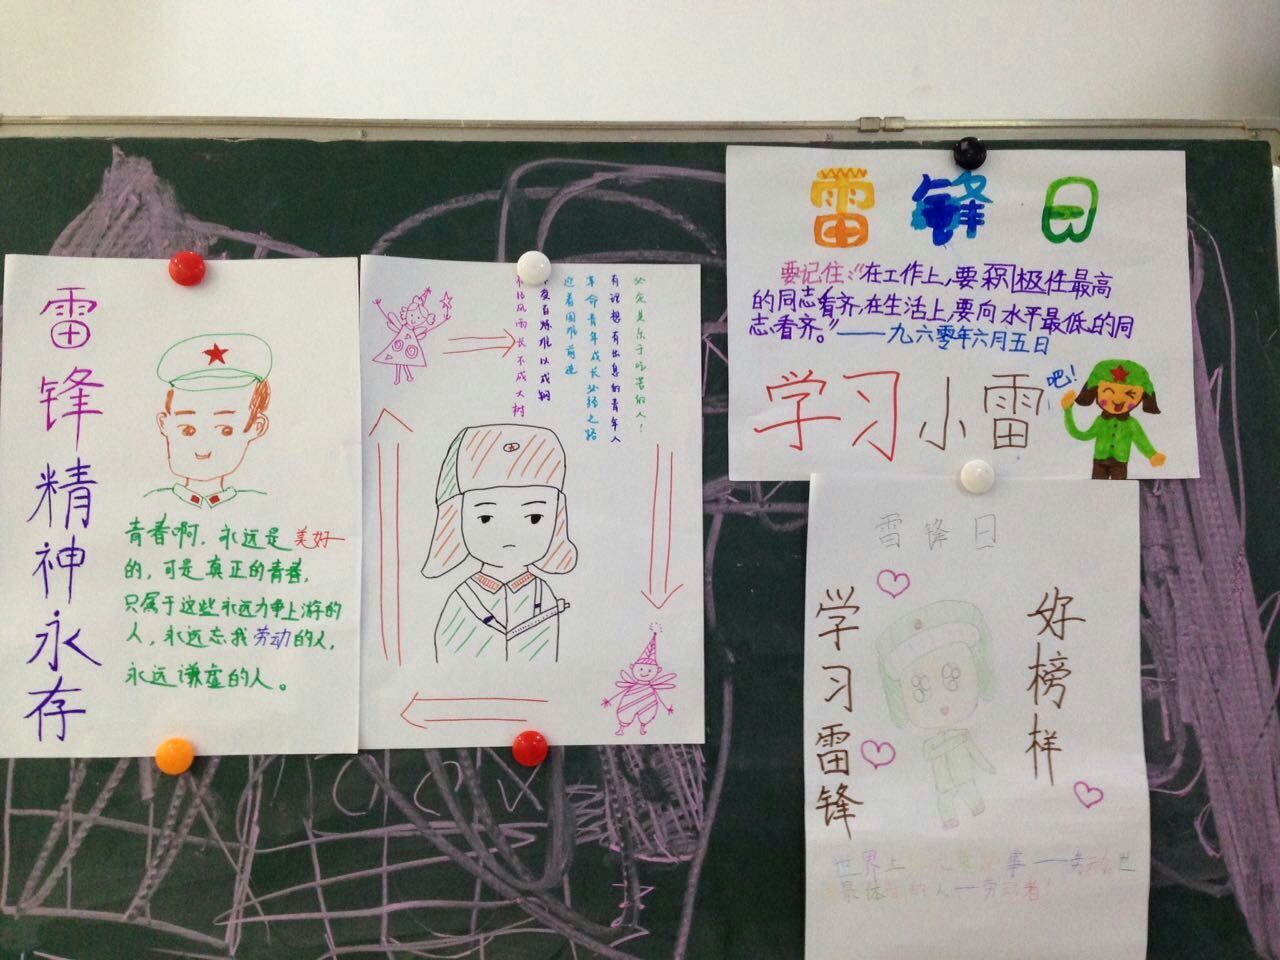 雷锋精神永存
青春啊，永远是美好
的，可是真正的青春，
只属于这些永远力争上游的
人，永远忘我劳动的人，
永远谦虚的人。
必定是乐于吃苦的人！
有理想有出息的青年人
革命青年成长必经之路
迎着困难前进
变百炼难以成钢
风雨长不成大树
雷锋日
要记住：“在工作上，要积极性最高
的同志看齐，在生活上，要向水平最低的同
志看齐。”——一九六零年六月五日
学习小雷
吧！
雷锋日
学习雷锋
好榜样
世界上
事——劳动世
的人—劳动者！